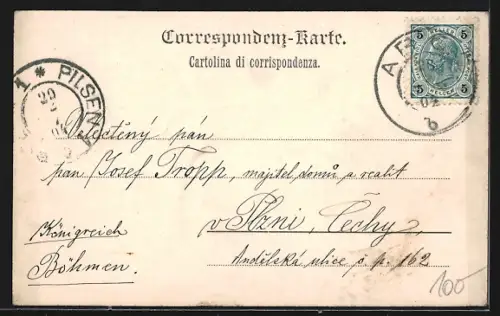 Correspondenz-Karte.
Cartolina di corrispondenza.
5 5
5 5
A
02
b
1 * PILSEN
20
2
Velectěný pán
pan Josef Tropp, majitel domů a realit
v Plzni, Čechy,
Andělská ulice č. p. 162.
Königreich
Böhmen.
100